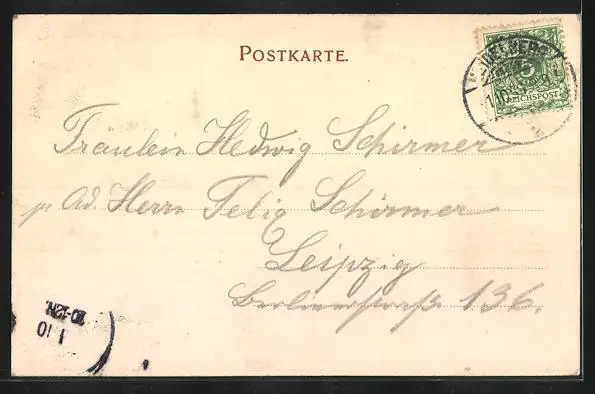 POSTKARTE.
HEIDELBERG
5
REICHSPOST
Fräulein Hedwig Schirmer
Ad. Herrn Felix Schirmer
Leipzig
Berlinerstraße 136.
1 10
10-12N.